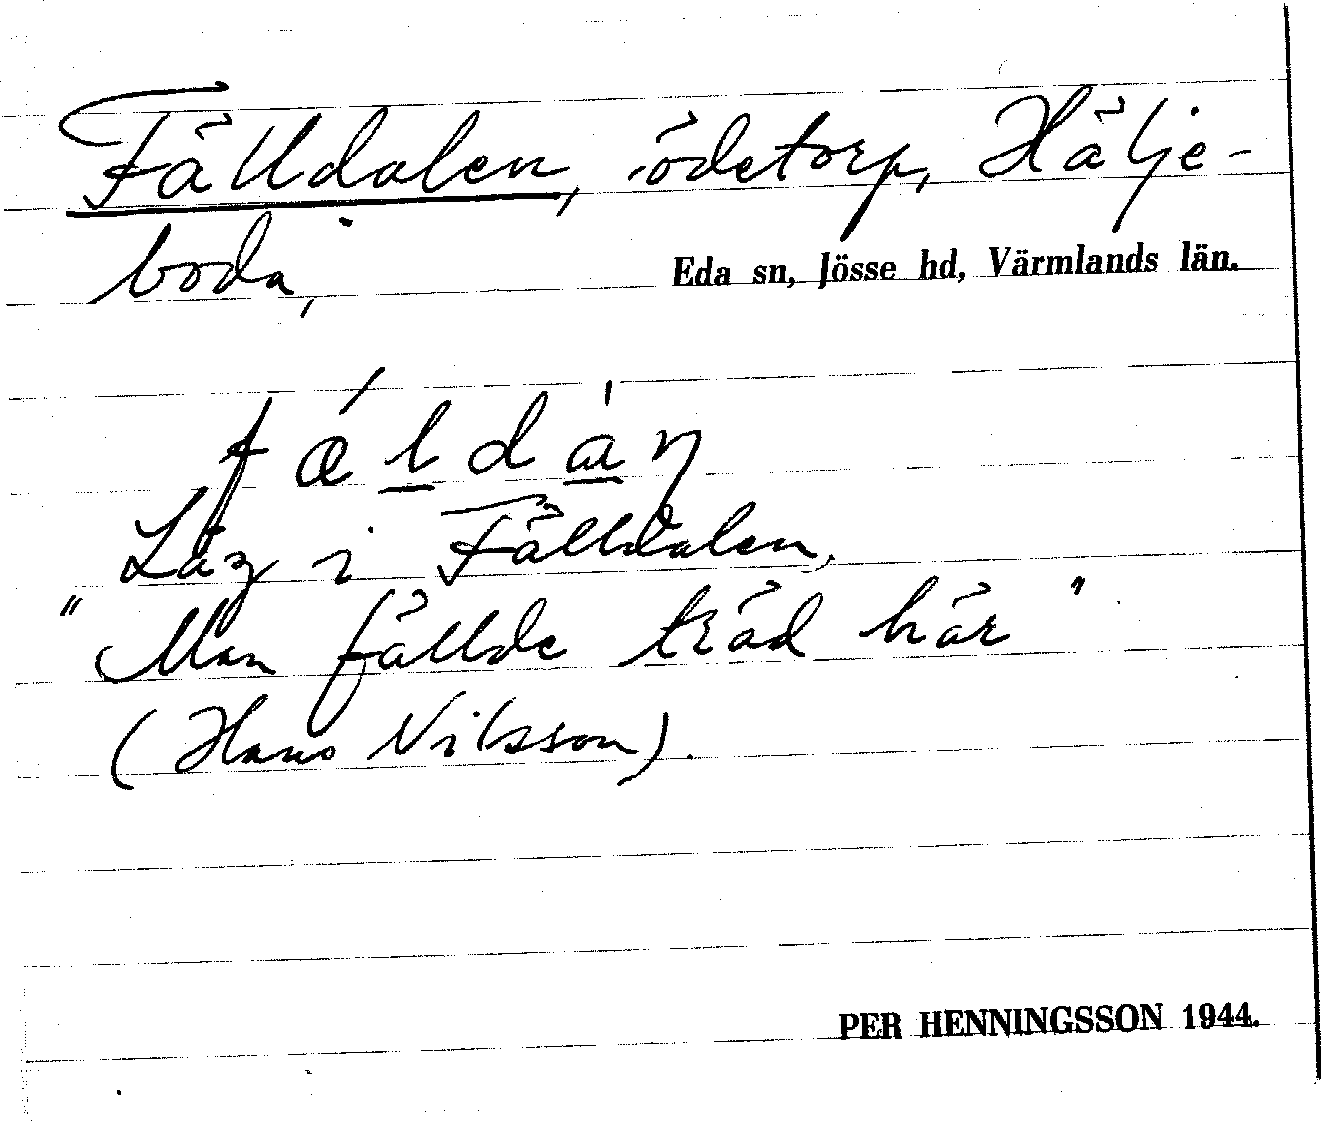 Fälldalen, ödetorp, Hälje-
boda,
Eda sn, Jösse hd, Värmlands län.
fǽldàn
Låg i Fälldalen.
"Man fällde träd här"
(Hans Nilsson).
PER HENNINGSSON 1944.